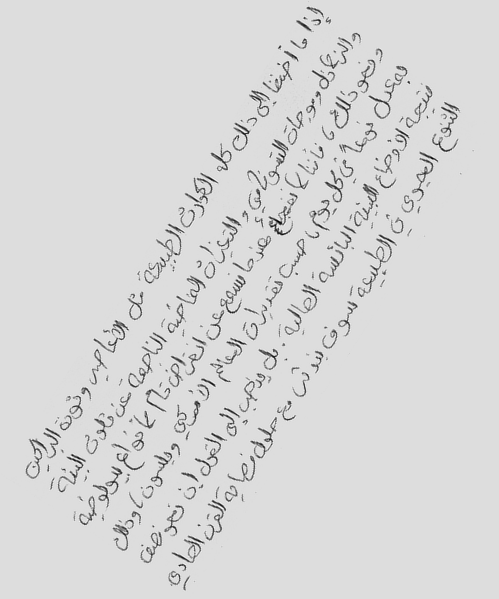 إذا ما أضفنا إلى ذلك كله الكوارث الطبيعية مثل الأعاصير وثورة البراكين
والزلازل وموجات التسونامي والتغيرات المناخية الناجمة عن تلوث البيئة
ونحو ذلك فإننا نفجأ عندما نسمع عن انقراض تام لأنواع بيولوجية
بمعدل نوعاً في كل يوم حسب تقديرات العالم الأمريكي ويلسون، وذلك
نتيجة الأوضاع البيئية البائسة الحالية. بل ويذهب إلى القول إن نحو نصف
التنوع الحيوي في الطبيعة سوف يندثر مع حلول نهاية القرن الحادي